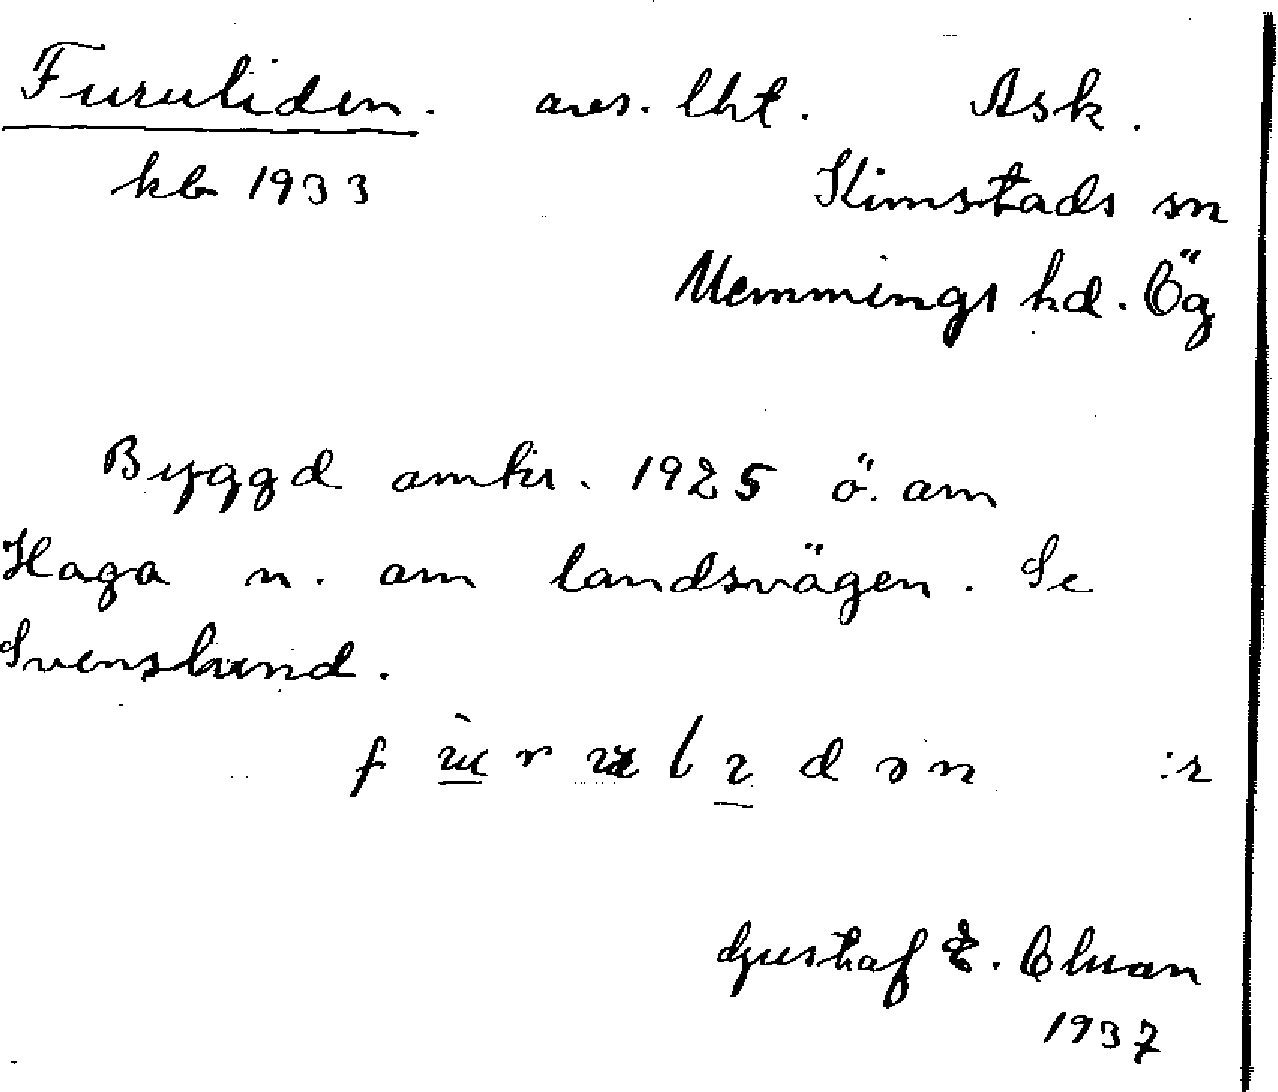 Furuliden. avs. lht. Ask.
kb 1933 Kimstads sn
Memmings hd. Ög
Byggd omkr. 1925 ö. om
Haga n. om landsvägen. Se
Svenslund.
Gustaf E.
1937